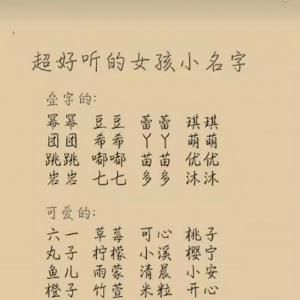 超好听的女孩小名字
叠字的:
幂幂 豆豆 蕾蕾 琪琪
团团 希希 丫丫 萌萌
跳跳 嘟嘟 苗苗 优优
岩岩 七七 多多 沐沐
可爱的:
六一 草莓 可心 桃子
丸子 柠檬 小溪 樱宁
鱼儿 雨蒙 小清 小安
橙子 竹萱 米粒 开心